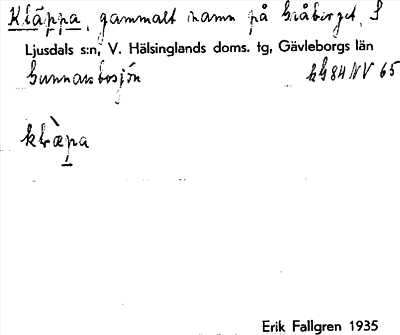 Kläppa, gammalt namn på Gråberget, S
Ljusdals s:n, V. Hälsinglands doms. tg, Gävleborgs län
Gunnarsbosjön 84 NV 65
klæ̀pa
Erik Fallgren 1935